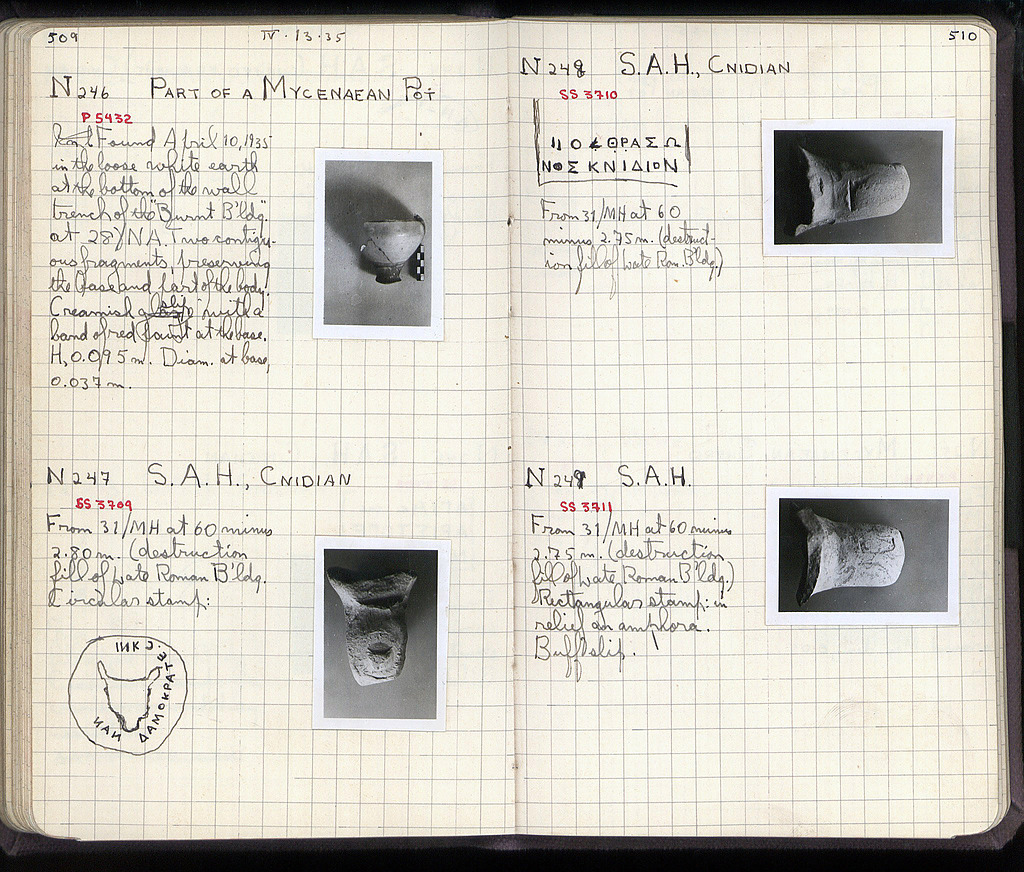 509
IV · 13 · 35
N 246 PART OF A MYCENAEAN POT
P 5432
Found April 10, 1935
in the loose white earth
at the bottom of the wall
trench of the "Burnt B'ldg."
at 28/NA. Two contigu-
ous fragments, preserving
the base and part of the body.
Creamish slip with a
band of red paint at the base.
H, 0.095 m. Diam. at base,
0.037 m.
N 247 S.A.H., CNIDIAN
SS 3709
From 31/MH at 60 minus
2.80 m. (destruction
fill of late Roman B'ldg.
Circular stamp:
ΔΑΜΟΚΡΑΤΕ
510
N 248 S.A.H., CNIDIAN
SS 3710
ΘΡΑΣΩ
ΝΟΣ ΚΝΙΔΙΟΝ
From 31/MH at 60
minus 2.75 m. (destruct-
ion fill of late Rom. B'ldg.)
N 249 S.A.H.
SS 3711
From 31/MH at 60 minus
2.75 m. (destruction
fill of late Roman B'ldg.)
Rectangular stamp: in
relief an amphora.
Buff slip.